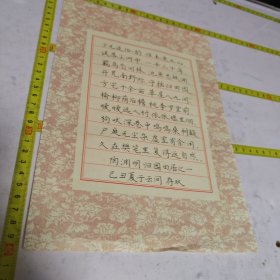 少无适俗韵 性本爱丘山
误落尘网中 一去三十年
羁鸟恋旧林 池鱼思故渊
开荒南野际 守拙归园田
方宅十余亩 草屋八九间
榆柳荫后檐 桃李罗堂前
暧暧远人村 依依墟里烟
狗吠深巷中 鸡鸣桑树颠
户庭无尘杂 虚室有余闲
久在樊笼里 复得返自然
陶渊明归园田居之一
己丑夏于云间